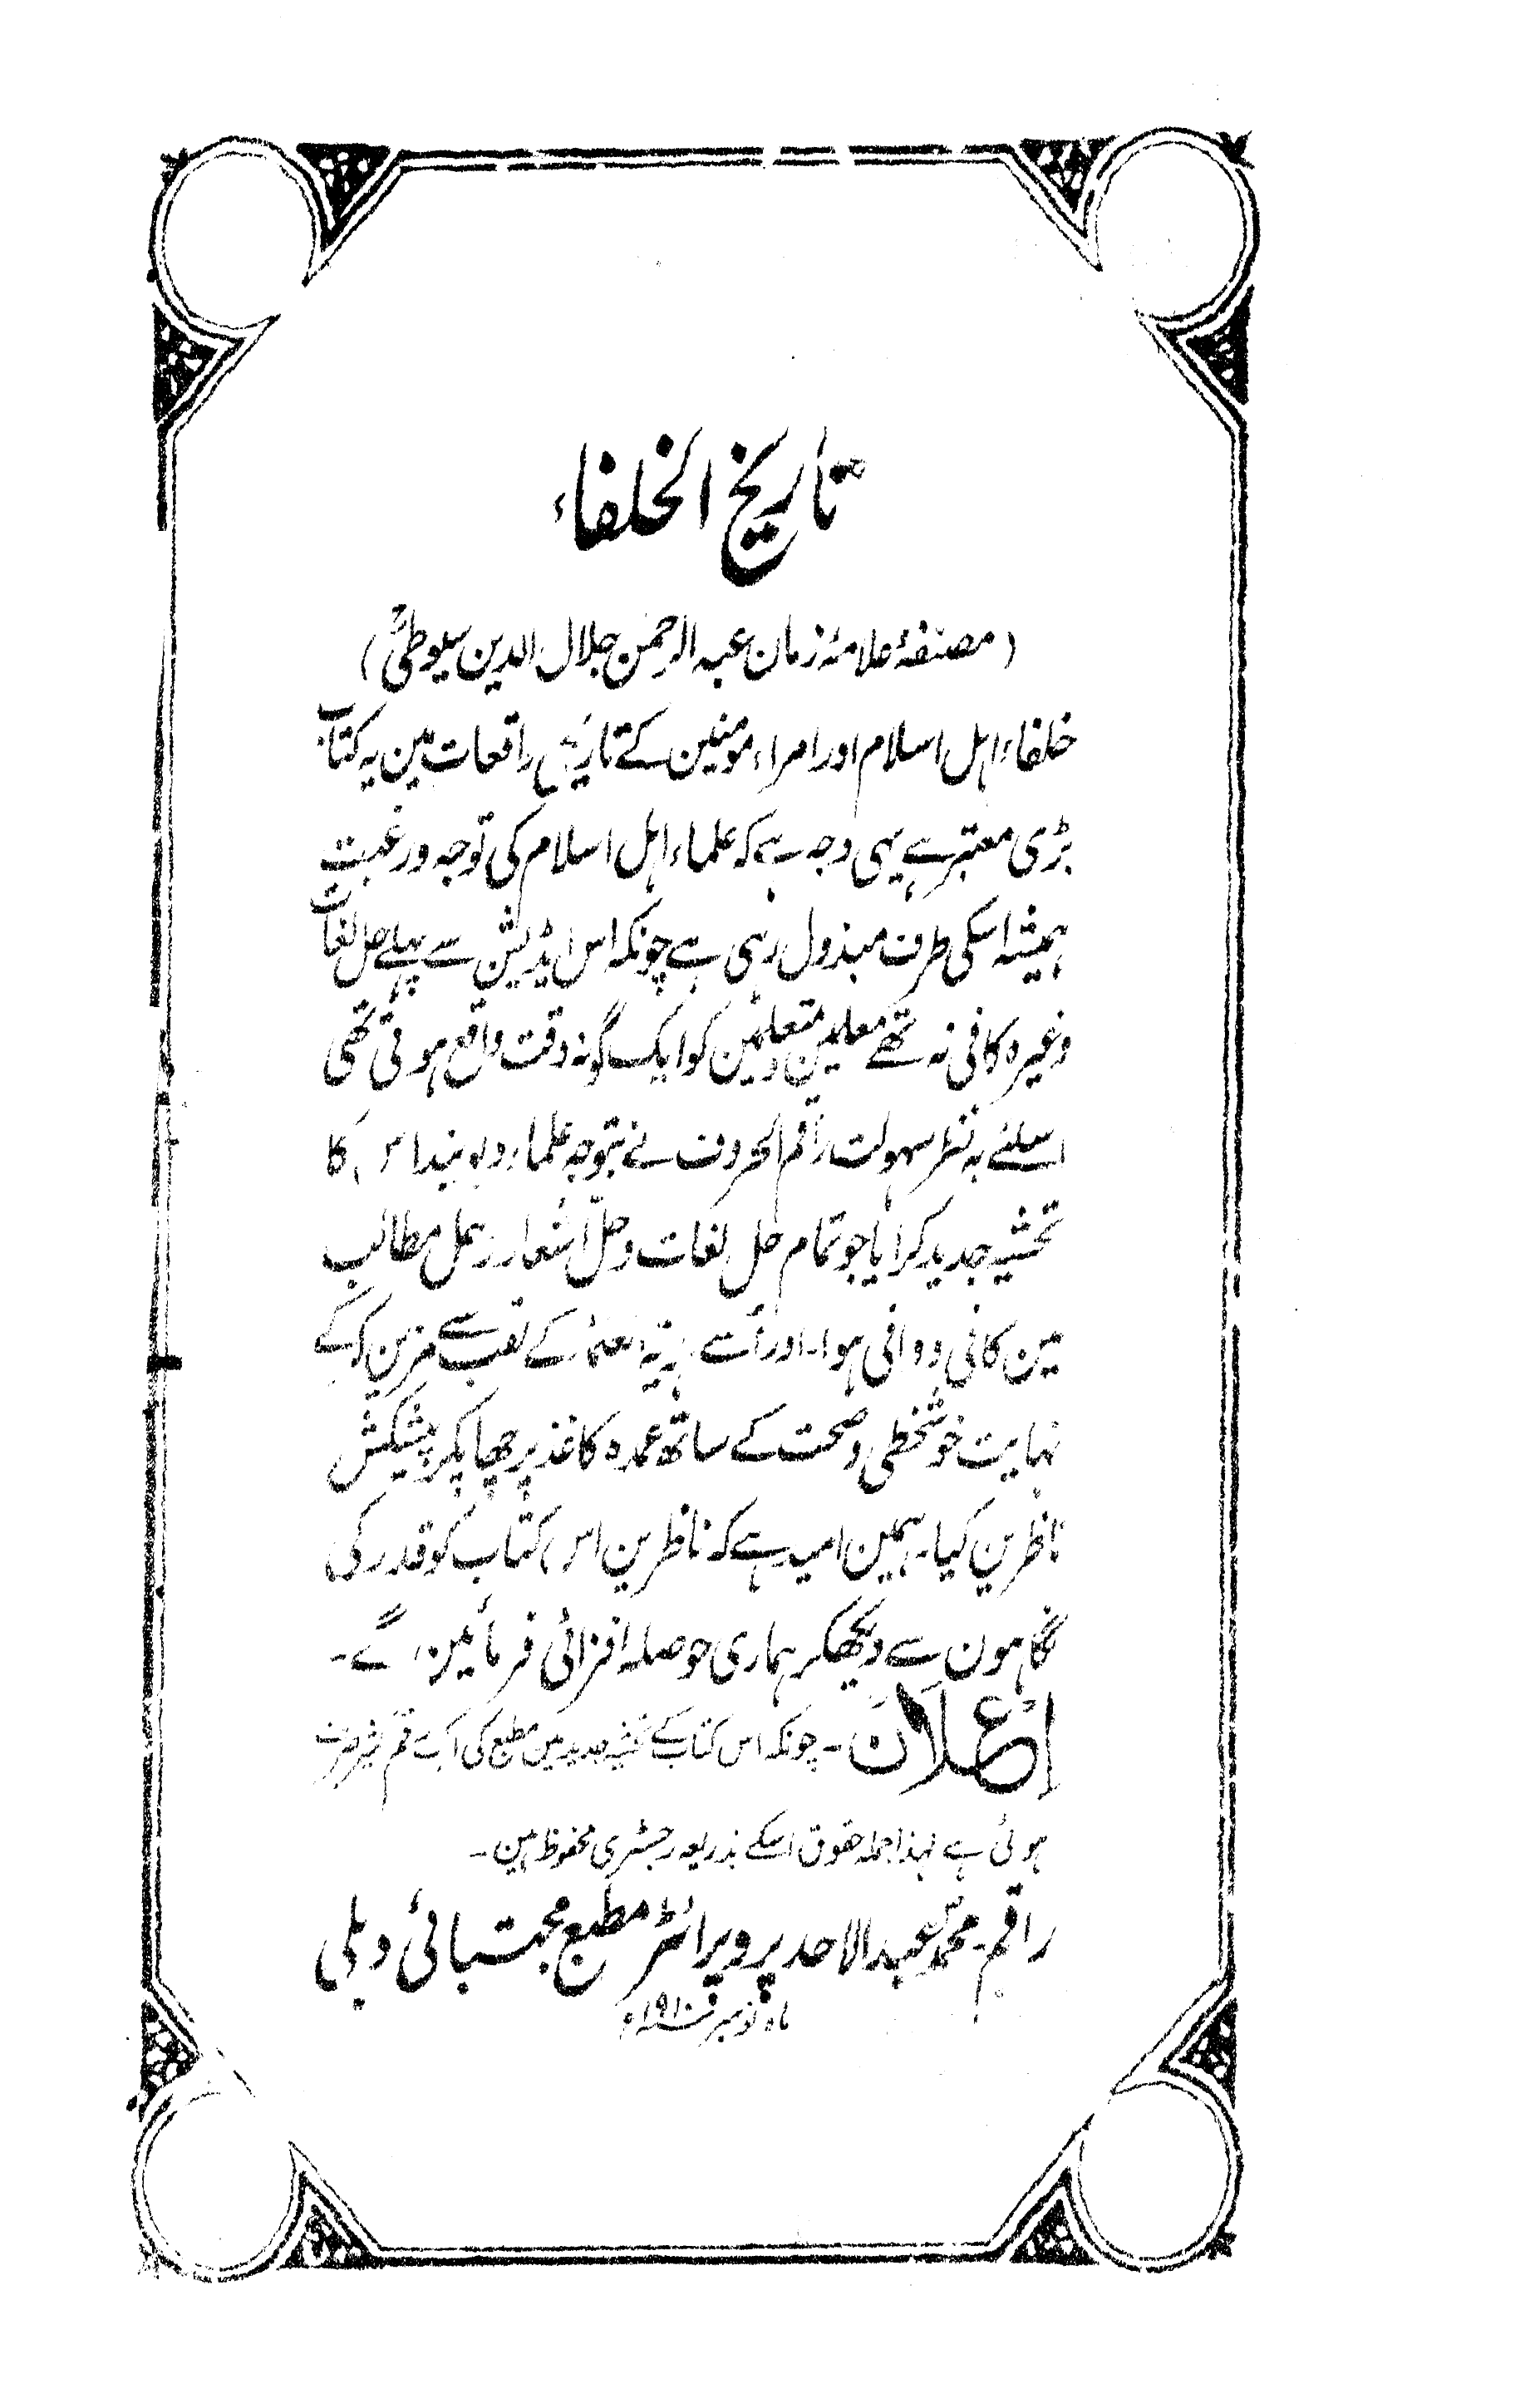 تاریخ الخلفاء
(مصنفۂ علامۂ زمان عبد الرحمن جلال الدین سیوطیؒ)
خلفاء اہل اسلام اور امراء مومنین کے تاریخی واقعات مین یہ کتاب
بڑی معتبر ہے یہی وجہ ہے کہ علماء اہل اسلام کی توجہ و رغبت
ہمیشہ اسکی طرف مبذول رہی ہے چونکہ اس ایڈیشن سے پہلے حل لغات
وغیرہ کافی نہ تھے معلمین و متعلمین کو ایک گونہ دقت واقع ہوتی تھی
اسلئے بہ نظر سہولت راقم الحروف نے بتوجہ علماء دیوبند اس کا
تحشیہ جدید کرایا جو تمام حل لغات و حل اشعار و حل مطالب
مین کافی و وافی ہوا۔ اور اُسے کے لقب سے مزین کرکے
نہایت خوشخطی و صحت کے ساتھ عمدہ کاغذ پر چھاپکر پیشکش
ناظرین کیا۔ ہمین امید ہے کہ ناظرین اس کتاب کو قدر کی
نگاہون سے دیکھکر ہماری حوصلہ افزائی فرمائین گے۔
اعلان۔ چونکہ اس کتاب کے تحشیہ جدید مین مطبع کی ایک رقم صرف
ہوئی ہے لہذا جملہ حقوق اسکے بذریعہ رجسٹری محفوظ ہین۔
راقم۔ محمد عبد الاحد پروپرائٹر مطبع مجتبائی دہلی
ماہ نومبر ۱۹۱۰ء